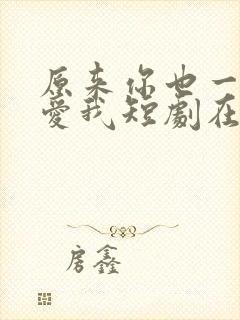 原来你也一
爱我短劇在
房鑫